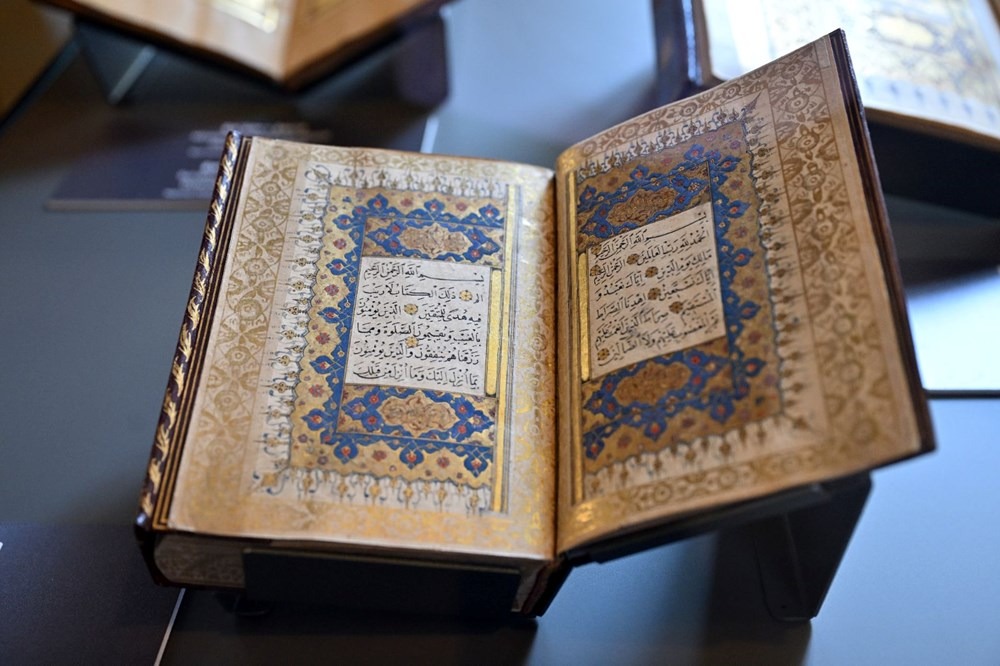 بسم الله الرحمن الرحيم
الحمد لله رب العالمين الرحمن الرحيم
مالك يوم الدين اياك نعبد و
اياك نستعين اهدنا الصراط
المستقيم صراط الذين انعمت عليهم
غير المغضوب عليهم ولا الضالين
بسم الله الرحمن الرحيم
الم ذلك الكتاب لا ريب
فيه هدى للمتقين الذين يؤمنون
بالغيب ويقيمون الصلوة ومما
رزقناهم ينفقون والذين يؤمنون
بما انزل اليك وما انزل من قبلك